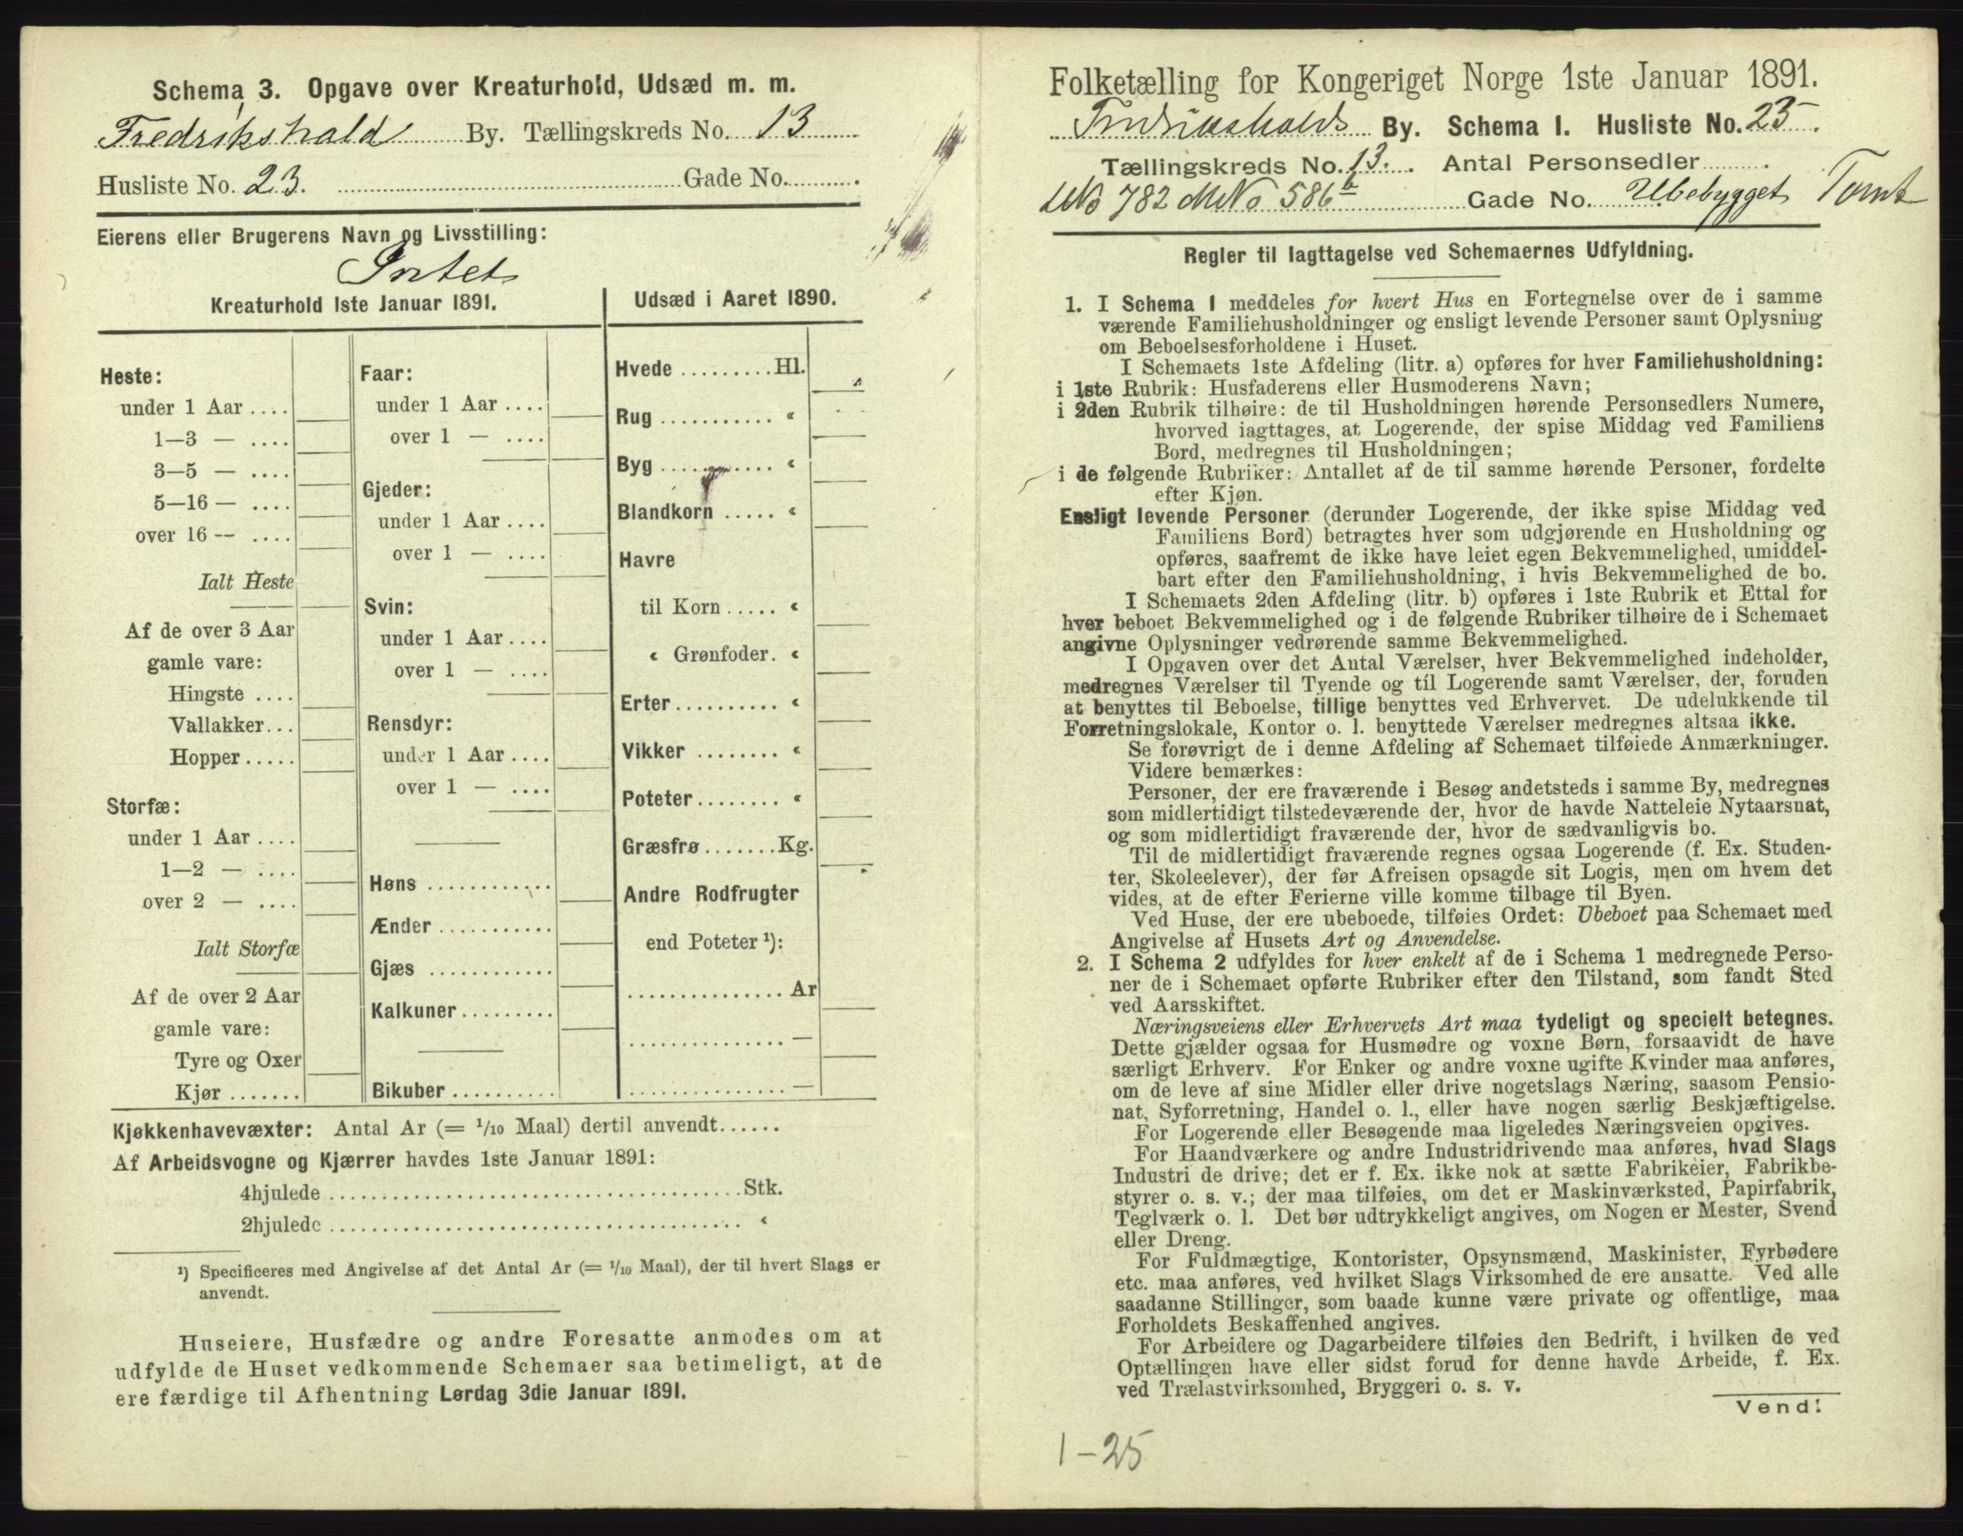 Schema 3. Opgave over Kreaturhold, Udsæd m. m.
Fredrikshald By. Tællingskreds No. 13
Husliste No. 23. Gade No.
Eierens eller Brugerens Navn og Livsstilling:
Intet
Kreaturhold 1ste Januar 1891.
Heste:
under 1 Aar
1—3 —
3—5 —
5—16 —
over 16 —
Ialt Heste
Af de over 3 Aar
gamle vare:
Hingste
Vallakker
Hopper
Storfæ:
under 1 Aar
1—2 —
over 2 —
Ialt Storfæ
Af de over 2 Aar
gamle vare:
Tyre og Oxer
Kjør
Faar:
under 1 Aar
over 1 —
Gjeder:
under 1 Aar
over 1 —
Svin:
under 1 Aar
over 1 —
Rensdyr:
under 1 Aar
over 1 —
Høns
Ænder
Gjæs
Kalkuner
Bikuber
Udsæd i Aaret 1890.
Hvede Hl.
Rug "
Byg "
Blandkorn "
Havre
til Korn "
" Grønfoder. "
Erter "
Vikker "
Poteter "
Græsfrø Kg.
Andre Rodfrugter
end Poteter ¹):
Ar
—
—
Kjøkkenhavevæxter: Antal Ar (= 1/10 Maal) dertil anvendt
Af Arbeidsvogne og Kjærrer havdes 1ste Januar 1891:
4hjulede Stk.
2hjulede "
¹) Specificeres med Angivelse af det Antal Ar (= 1/10 Maal), der til hvert Slags er
anvendt.
Huseiere, Husfædre og andre Foresatte anmodes om at
udfylde de Huset vedkommende Schemaer saa betimeligt, at de
ere færdige til Afhentning Lørdag 3die Januar 1891.
Folketælling for Kongeriget Norge 1ste Januar 1891.
Fredrikshalds By. Schema I. Husliste No. 23.
Tællingskreds No. 13. Antal Personsedler
LNo 782 MNo 586b Gade No. Ubebygget Tomt
Regler til Iagttagelse ved Schemaernes Udfyldning.
1. I Schema 1 meddeles for hvert Hus en Fortegnelse over de i samme
værende Familiehusholdninger og ensligt levende Personer samt Oplysning
om Beboelsesforholdene i Huset.
I Schemaets 1ste Afdeling (litr. a) opføres for hver Familiehusholdning:
i 1ste Rubrik: Husfaderens eller Husmoderens Navn;
i 2den Rubrik tilhøire: de til Husholdningen hørende Personsedlers Numere,
hvorved iagttages, at Logerende, der spise Middag ved Familiens
Bord, medregnes til Husholdningen;
i de følgende Rubriker: Antallet af de til samme hørende Personer, fordelte
efter Kjøn.
Ensligt levende Personer (derunder Logerende, der ikke spise Middag ved
Familiens Bord) betragtes hver som udgjørende en Husholdning og
opføres, saafremt de ikke have leiet egen Bekvemmelighed, umiddel-
bart efter den Familiehusholdning, i hvis Bekvemmelighed de bo.
I Schemaets 2den Afdeling (litr. b) opføres i 1ste Rubrik et Ettal for
hver beboet Bekvemmelighed og i de følgende Rubriker tilhøire de i Schemaet
angivne Oplysninger vedrørende samme Bekvemmelighed.
I Opgaven over det Antal Værelser, hver Bekvemmelighed indeholder,
medregnes Værelser til Tyende og til Logerende samt Værelser, der, foruden
at benyttes til Beboelse, tillige benyttes ved Erhvervet. De udelukkende til
Forretningslokale, Kontor o. l. benyttede Værelser medregnes altsaa ikke.
Se forøvrigt de i denne Afdeling af Schemaet tilføiede Anmærkninger.
Videre bemærkes:
Personer, der ere fraværende i Besøg andetsteds i samme By, medregnes
som midlertidigt tilstedeværende der, hvor de havde Natteleie Nytaarsnat,
og som midlertidigt fraværende der, hvor de sædvanligvis bo.
Til de midlertidigt fraværende regnes ogsaa Logerende (f. Ex. Studen-
ter, Skoleelever), der før Afreisen opsagde sit Logis, men om hvem det
vides, at de efter Ferierne ville komme tilbage til Byen.
Ved Huse, der ere ubeboede, tilføies Ordet: Ubeboet paa Schemaet med
Angivelse af Husets Art og Anvendelse.
2. I Schema 2 udfyldes for hver enkelt af de i Schema 1 medregnede Perso-
ner de i Schemaet opførte Rubriker efter den Tilstand, som fandt Sted
ved Aarsskiftet.
Næringsveiens eller Erhvervets Art maa tydeligt og specielt betegnes.
Dette gjælder ogsaa for Husmødre og voxne Børn, forsaavidt de have
særligt Erhverv. For Enker og andre voxne ugifte Kvinder maa anføres,
om de leve af sine Midler eller drive nogetslags Næring, saasom Pensio-
nat, Syforretning, Handel o. l., eller have nogen særlig Beskjæftigelse.
For Logerende eller Besøgende maa ligeledes Næringsveien opgives.
For Haandværkere og andre Industridrivende maa anføres, hvad Slags
Industri de drive; det er f. Ex. ikke nok at sætte Fabrikeier, Fabrikbe-
styrer o. s. v.; der maa tilføies, om det er Maskinværksted, Papirfabrik,
Teglværk o. l. Det bør udtrykkeligt angives, om Nogen er Mester, Svend
eller Dreng.
For Fuldmægtige, Kontorister, Opsynsmænd, Maskinister, Fyrbødere
etc. maa anføres, ved hvilket Slags Virksomhed de ere ansatte. Ved alle
saadanne Stillinger, som baade kunne være private og offentlige, maa
Forholdets Beskaffenhed angives.
For Arbeidere og Dagarbeidere tilføies den Bedrift, i hvilken de ved
Optællingen have eller sidst forud for denne havde Arbeide, f. Ex.
ved Trælastvirksomhed, Bryggeri o. s. v.
Vend!
1-25